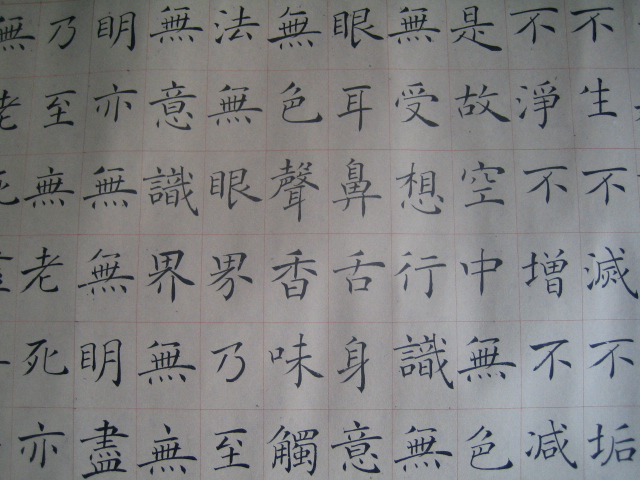 不生不滅不垢
不淨不增不減
是故空中無色
無受想行識無
眼耳鼻舌身意
無色聲香味觸
法無眼界乃至
無意識界無無
明亦無無明盡
乃至無老死亦
無老